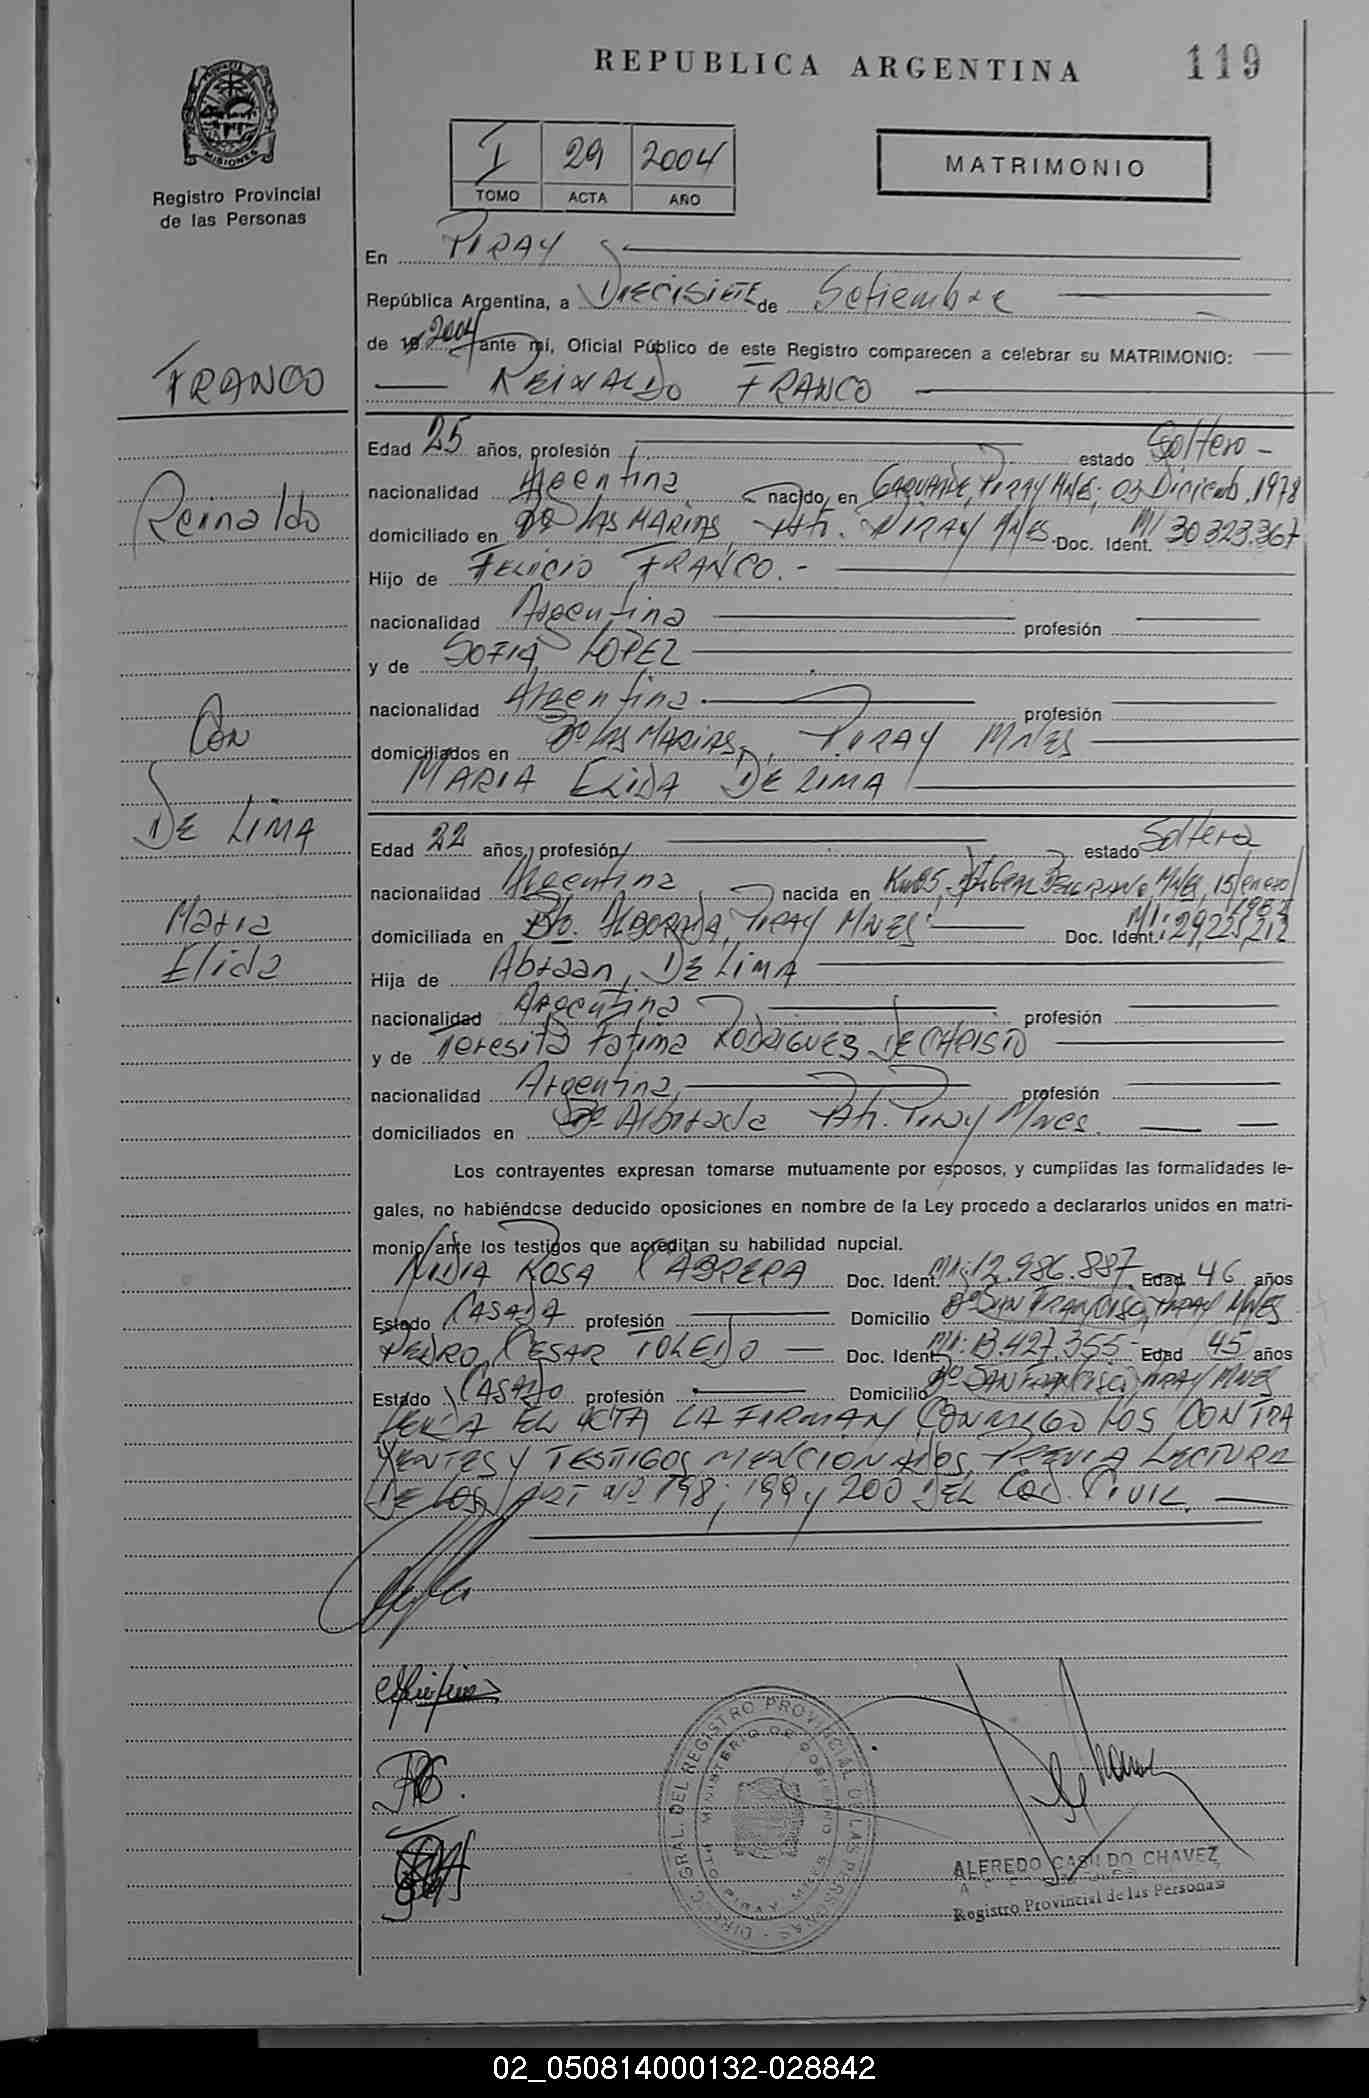 REPUBLICA ARGENTINA
119
MISIONES
Registro Provincial
de las Personas
I 29 2004
TOMO ACTA AÑO
MATRIMONIO
En PIRAY
República Argentina, a DIECISIETE de Setiembre
de 19 2004 ante mí, Oficial Público de este Registro comparecen a celebrar su MATRIMONIO:
FRANCO
REINALDO FRANCO
Edad 25 años, profesión estado Soltero -
Reinaldo
nacionalidad Argentina nacido en PIRAY MNES; 03 Diciemb, 1978
domiciliado en Bº LAS MARIAS, PIRAY MNES. Doc. Ident. MI 30.323.367
Hijo de FELICIO FRANCO. -
nacionalidad Argentina profesión
y de SOFIA LOPEZ
nacionalidad Argentina profesión
Con
domiciliados en Bº LAS MARIAS, PIRAY MNES
MARIA ELIDA DE LIMA
DE LIMA
Edad 22 años, profesión estado Soltera
nacionalidad Argentina nacida en Km 25, BELGRANO MNES, 15/enero/
1982
Maria
Elida
domiciliada en Bº. ALBORADA, PIRAY MNES Doc. Ident. MI: 29,225,212
Hija de Abraan, DE LIMA
nacionalidad Argentina profesión
y de Teresita Fatima RODRIGUEZ DE CHRISTO
nacionalidad Argentina profesión
domiciliados en Bº Alborada Piray Mnes.
Los contrayentes expresan tomarse mutuamente por esposos, y cumplidas las formalidades le-
gales, no habiéndose deducido oposiciones en nombre de la Ley procedo a declararlos unidos en matri-
monio ante los testigos que acreditan su habilidad nupcial.
NIDIA ROSA CABRERA Doc. Ident. MI: 12.986.887 Edad 46 años
Estado CASADA profesión Domicilio Bº SAN FRANCISCO, PIRAY MNES
PEDRO CESAR TOLEDO Doc. Ident. MI: 13.427.355 Edad 45 años
Estado CASADO profesión Domicilio Bº SAN FRANCISCO, PIRAY MNES
LEIDA EL ACTA LA FIRMAN CONMIGO LOS CONTRA
YENTES Y TESTIGOS MENCIONADOS, PREVIA LECTURA
DE LOS ART Nº 198; 199 y 200 DEL COD. CIVIL.
DIREC. GRAL. DEL REGISTRO PROVINCIAL DE LAS PERSONAS
MINISTERIO DE GOBIERNO
ALFREDO CASILDO CHAVEZ
Registro Provincial de las Personas
02_050814000132-028842